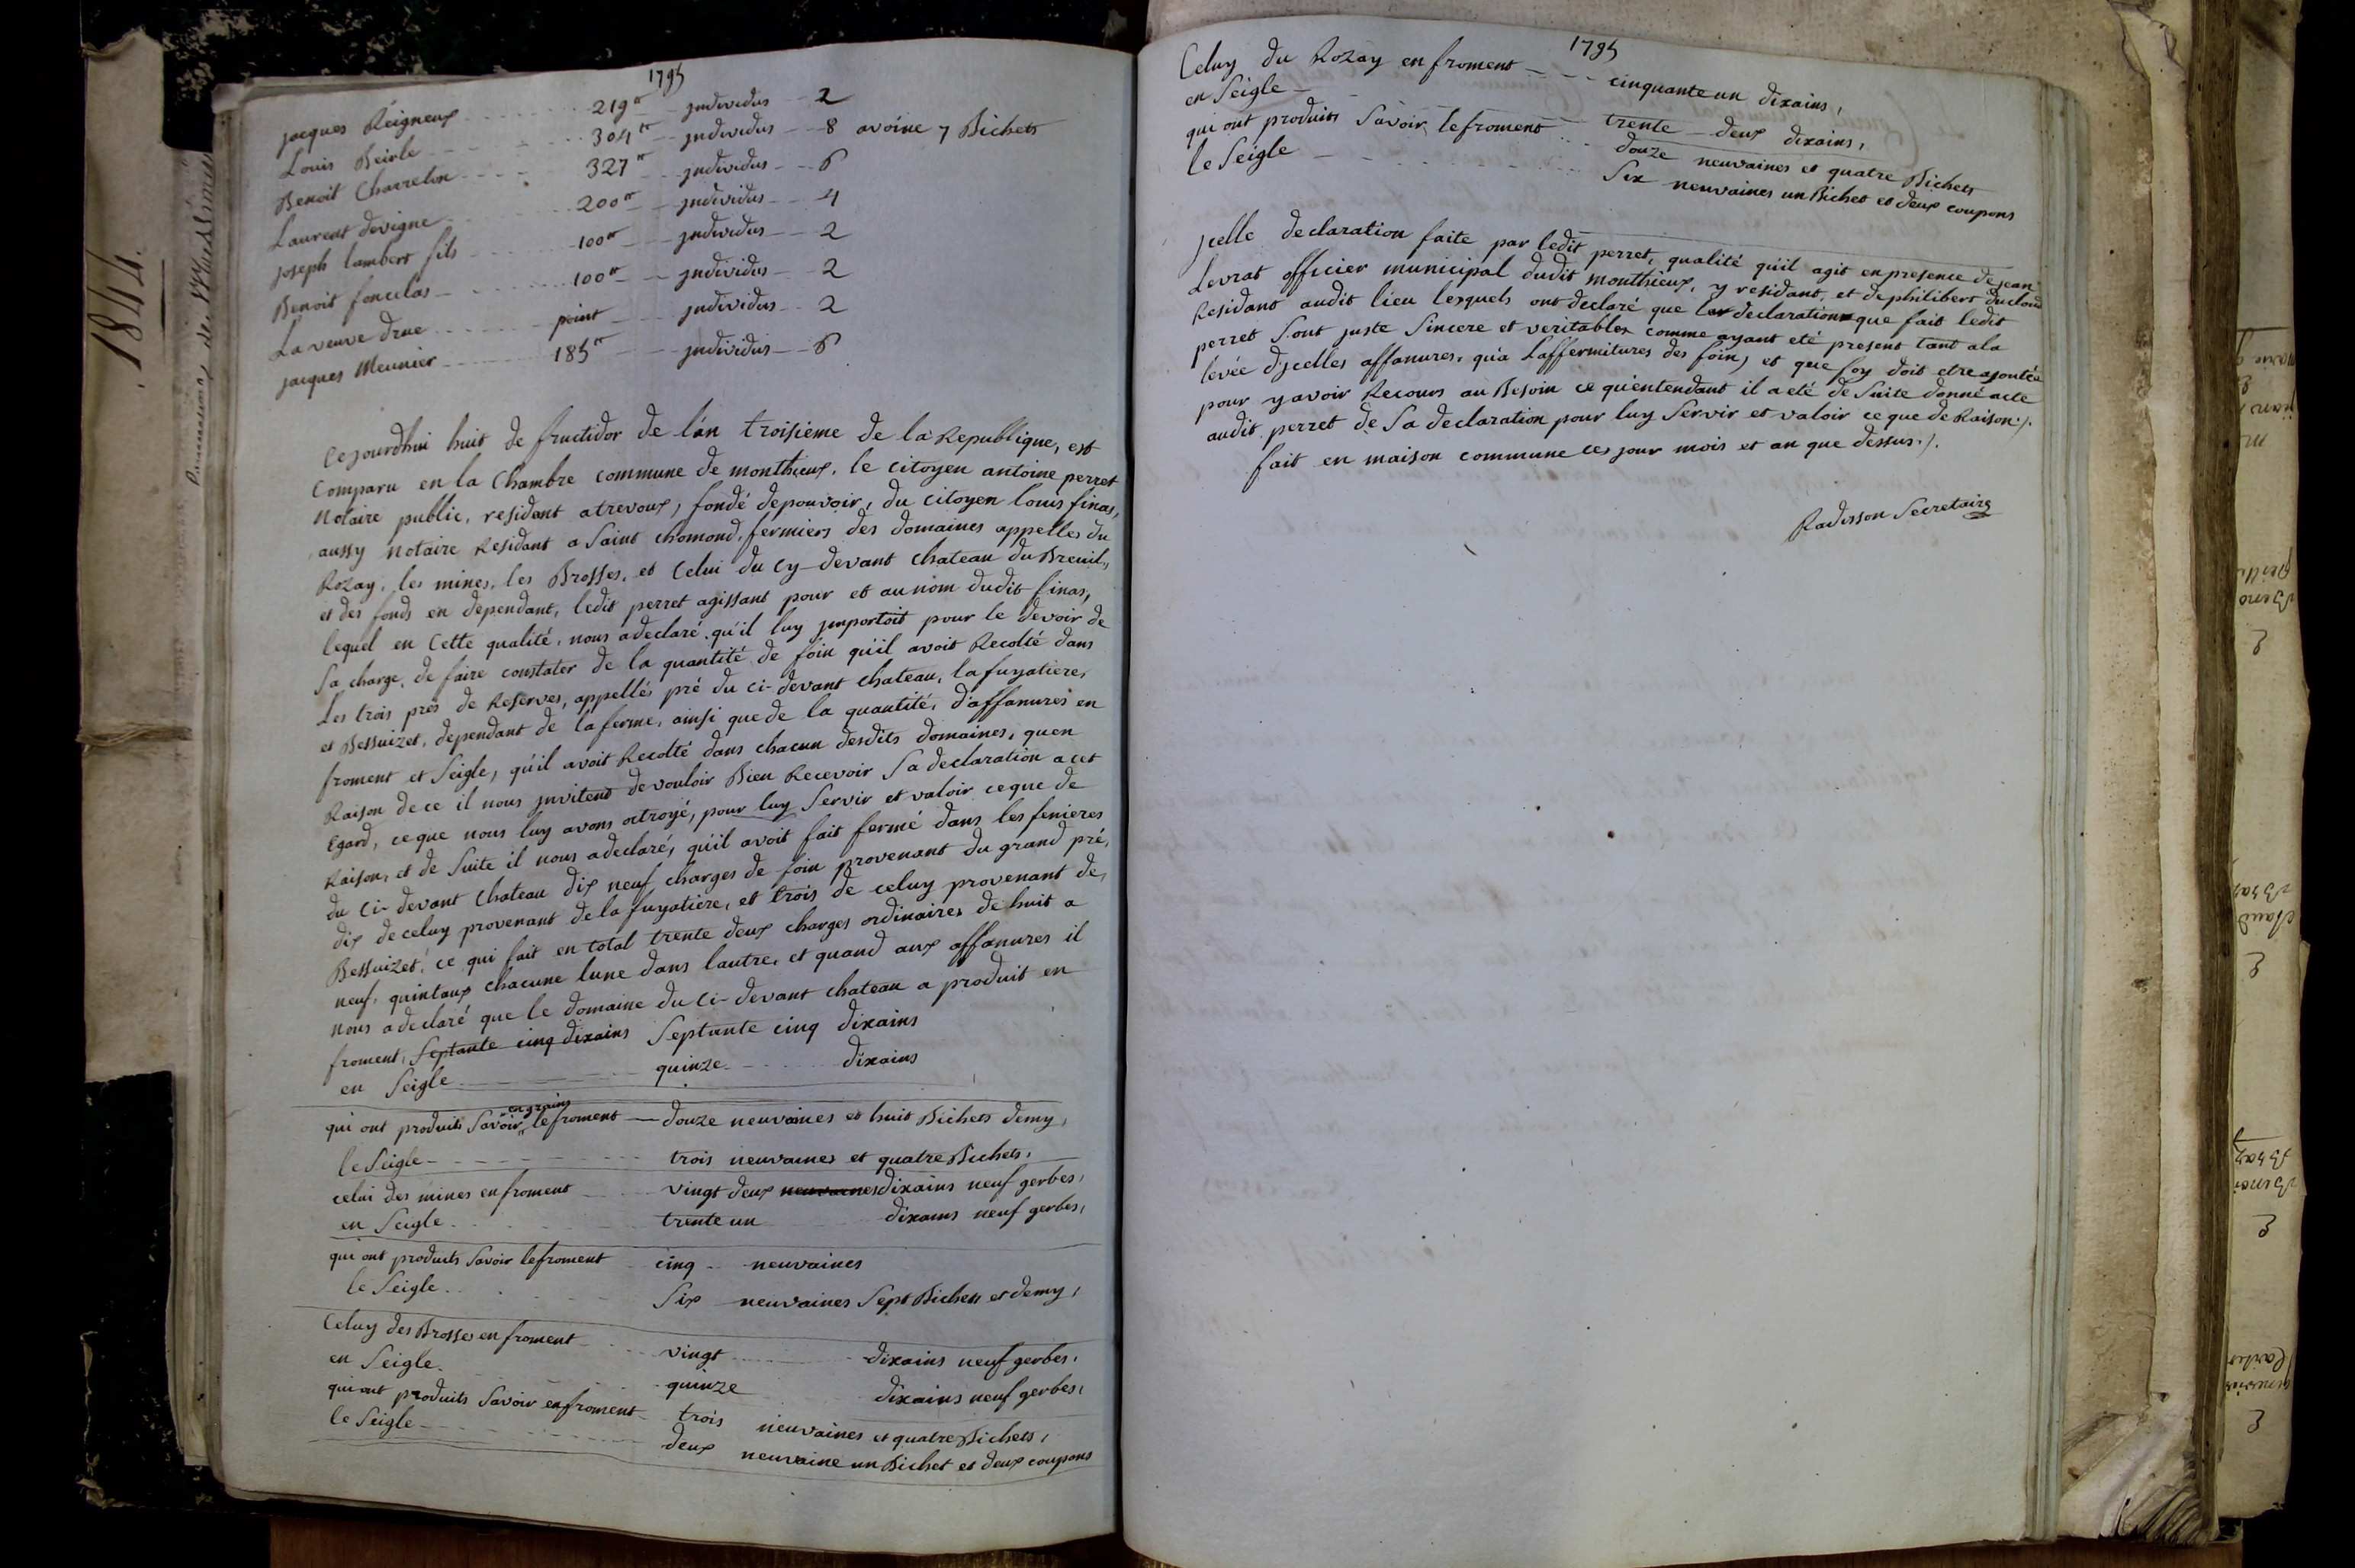 1795
jacques Reigneux 219 tt jndividus 2
Louis Beirle 304 tt jndividus 8 avoine 7 Bichets
Benoit Charreton 327 tt jndividus 6
Laurent devigne 200 tt jndividus 4
joseph lambert fils 100 tt jndividus 2
Benoit foncelas 100 tt jndividus 2
La veuve drue point jndividus 2
jacques Meunier 185 tt jndividus 6
Cejourdhui huit de fructidor de l'an troisieme de la Republique, est
Comparu en la Chambre commune de monthieux, le citoyen antoine perret
Notaire public, residant a trevoux, fondé depouvoir, du citoyen louis finas,
aussy notaire Residant a Saint chomond, fermiers des domaines appelles du
Rozay, les mines, les Brosses, et Celui du Cy-devant chateau du Breuil,
et des fonds en dependant, ledit perret agissant pour et au nom dudit finas,
lequel en Cette qualité, nous a declaré qu'il luy jmportoit pour le devoir de
Sa charge, de faire constater de la quantité de foin qu'il avoit Recolté dans
Les trois prés de Reserves, appellés pré du ci-devant chateau, la fuyatiere,
et Bessuizet, dependant de la ferme, ainsi que de la quantité, d'affanures en
froment et Seigle, qu'il avoit Recolté dans chacun desdits domaines, quen
Raison de ce il nous jnvitent de vouloir Bien Recevoir Sa declaration a cet
Egard, ceque nous luy avons octroyé, pour luy Servir et valoir ceque de
Raison, et de Suite il nous a declaré, qu'il avoit fait fermé dans les fenieres
du Ci-devant Chateau dix neuf charges de foin provenant du grand pré,
dix de celuy provenant de la fuyatiere, et trois de celuy provenant de,
Bessuizet, ce qui fait en total trente deux charges ordinaires de huit a
neuf, quintaux chacune lune dans lautre, et quand aux affanures il
nous a declaré que le domaine du Ci-devant chateau a produit en
froment, Septante cinq dixains Septante cinq dixains
en Seigle quinze dixains
en grains
qui ont produits Savoir le froment douze neuvaines et huit Bichets demy,
le Seigle trois neuvaines et quatre Bichets,
celui des mines en froment vingt deux neuvaines dixains neuf gerbes,
en Seigle trente un dixains neuf gerbes,
qui ont produits Savoir le froment cinq neuvaines
le Seigle Six neuvaines Sept Bichets et demy,
Celuy des Brosses en froment vingt dixains neuf gerbes,
en Seigle quinze dixains neuf gerbes,
qui ont produits Savoir en froment trois neuvaines et quatre Bichets,
le Seigle deux neuvaine un Bichet et deux coupons
1795
Celuy du Rozay en froment cinquante un dixains,
en Seigle trente deux dixains,
qui ont produits Savoir le froment douze neuvaines et quatre Bichets
le Seigle Six neuvaines un Bichet et deux coupons
jcelle declaration faite par ledit perret, qualité qu'il agit en presence de jean
Levrat officier municipal dudit monthieux, y residant, et de philibert duclou
Residant audit lieu lesquels ont declaré que les declaration que fait ledit
perret Sont juste Sincere et veritables comme ayant eté present tant a la
levée d'jcelles affanures, qu'a Laffermitures des foin, et que foy doit etre ajoutée
pour y avoir Recours au Besoin ce qu'entendant il a eté de Suite donné acte
audit perret de Sa declaration pour luy Servir et valoir ce que de Raison ./.
fait en maison commune ces jour mois et an que dessus ./.
Radisson Secretaire
1844.